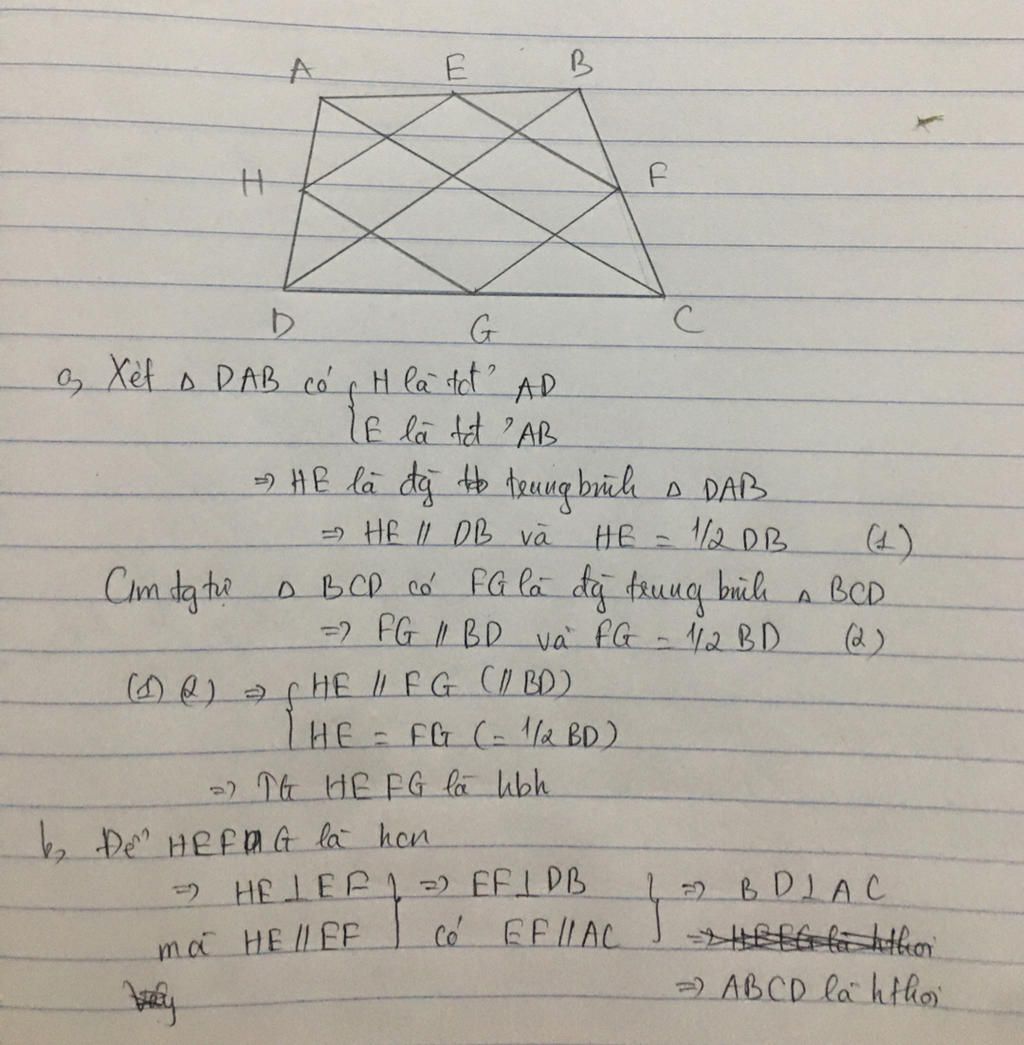 A E B
H F
D G C
a, Xét Δ DAB có { H là tđ' AD
{ E là tđ' AB
=> HE là đg trung bình Δ DAB
=> HE // DB và HE = 1/2 DB (1)
Cm tg tự Δ BCD có FG là đg trung bình Δ BCD
=> FG // BD và FG = 1/2 BD (2)
(1) (2) => { HE // FG (// BD)
{ HE = FG (= 1/2 BD)
=> TG HEFG là hbh
b, Để HEFG là hcn
=> HE ⊥ EF } => EF ⊥ DB } => BD ⊥ AC
mà HE // EF } có EF // AC } => HEFG là hthoi
=> ABCD là hthoi